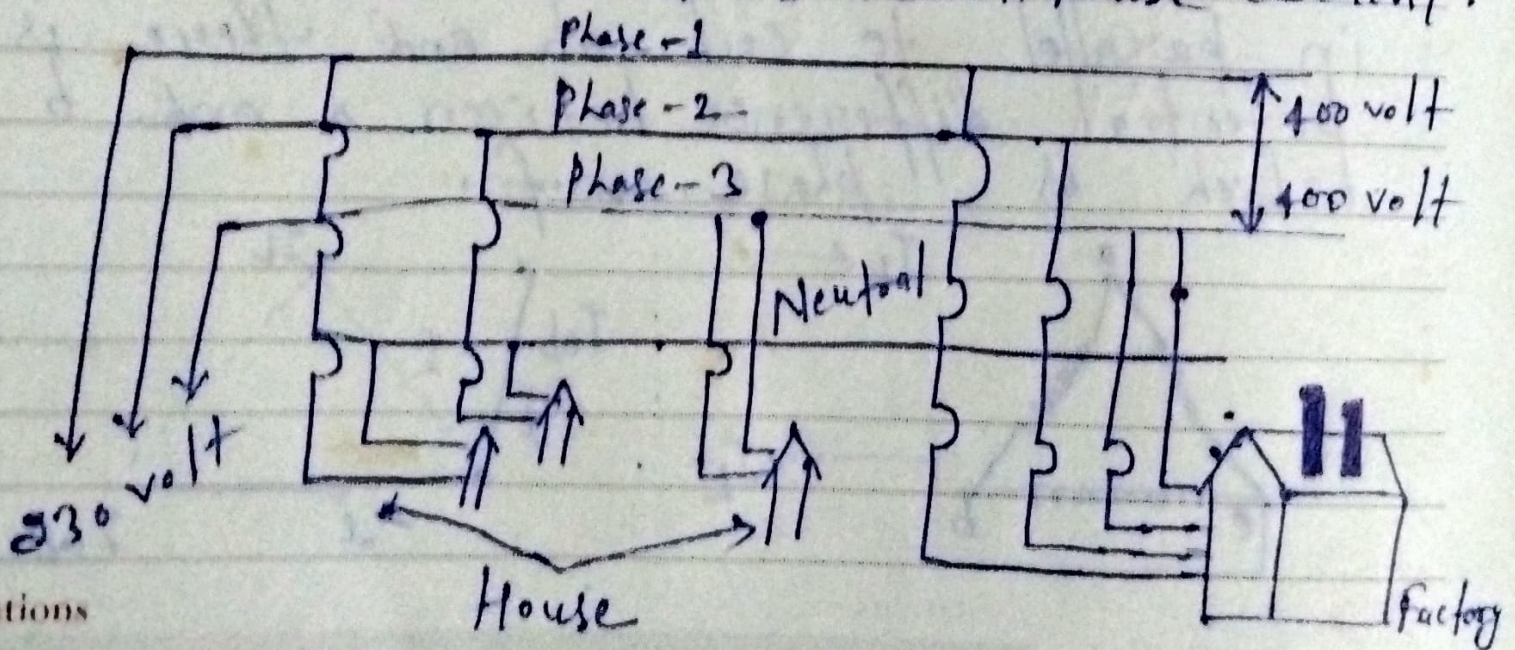 Phase-1
Phase-2
Phase-3
400 volt
400 volt
Neutral
230 volt
House
Factory
tions